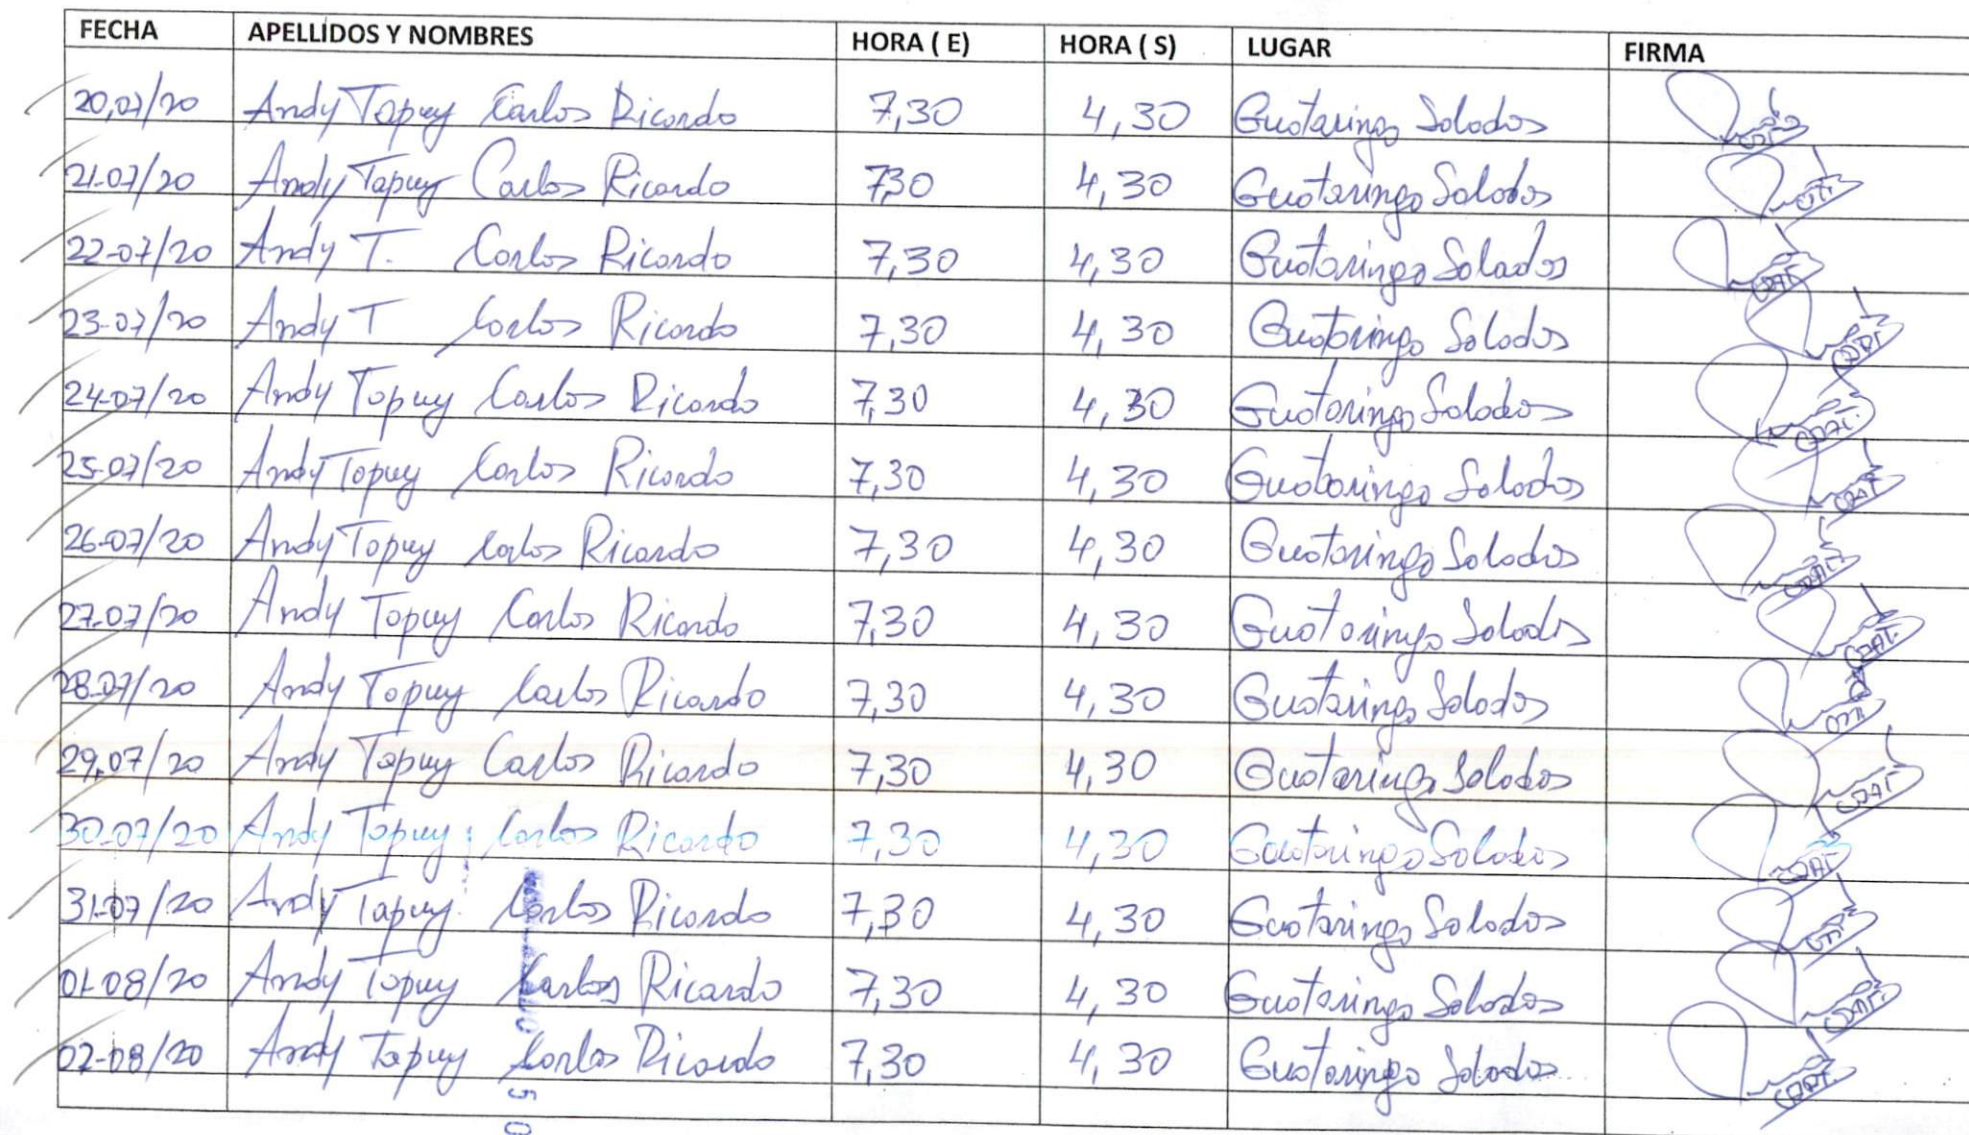 FECHA APELLIDOS Y NOMBRES HORA ( E) HORA ( S) LUGAR FIRMA
20,07/20 Andy Tapuy Carlos Ricardo 7,30 4,30 Guataringo Salados
21-07/20 Andy Tapuy Carlos Ricardo 7,30 4,30 Guataringo Salados
22-07/20 Andy T. Carlos Ricardo 7,30 4,30 Guataringo Salados
23-07/20 Andy T Carlos Ricardo 7,30 4,30 Guataringo Salados
24-07/20 Andy Tapuy Carlos Ricardo 7,30 4,30 Guataringo Salados
25-07/20 Andy Tapuy Carlos Ricardo 7,30 4,30 Guataringo Salados
26-07/20 Andy Tapuy Carlos Ricardo 7,30 4,30 Guataringo Salados
27-07/20 Andy Tapuy Carlos Ricardo 7,30 4,30 Guataringo Salados
28-07/20 Andy Tapuy Carlos Ricardo 7,30 4,30 Guataringo Salados
29,07/20 Andy Tapuy Carlos Ricardo 7,30 4,30 Guataringo Salados
30-07/20 Andy Tapuy Carlos Ricardo 7,30 4,30 Guataringo Salados
31-07/20 Andy Tapuy Carlos Ricardo 7,30 4,30 Guataringo Salados
01-08/20 Andy Tapuy Carlos Ricardo 7,30 4,30 Guataringo Salados
02-08/20 Andy Tapuy Carlos Ricardo 7,30 4,30 Guataringo Salados